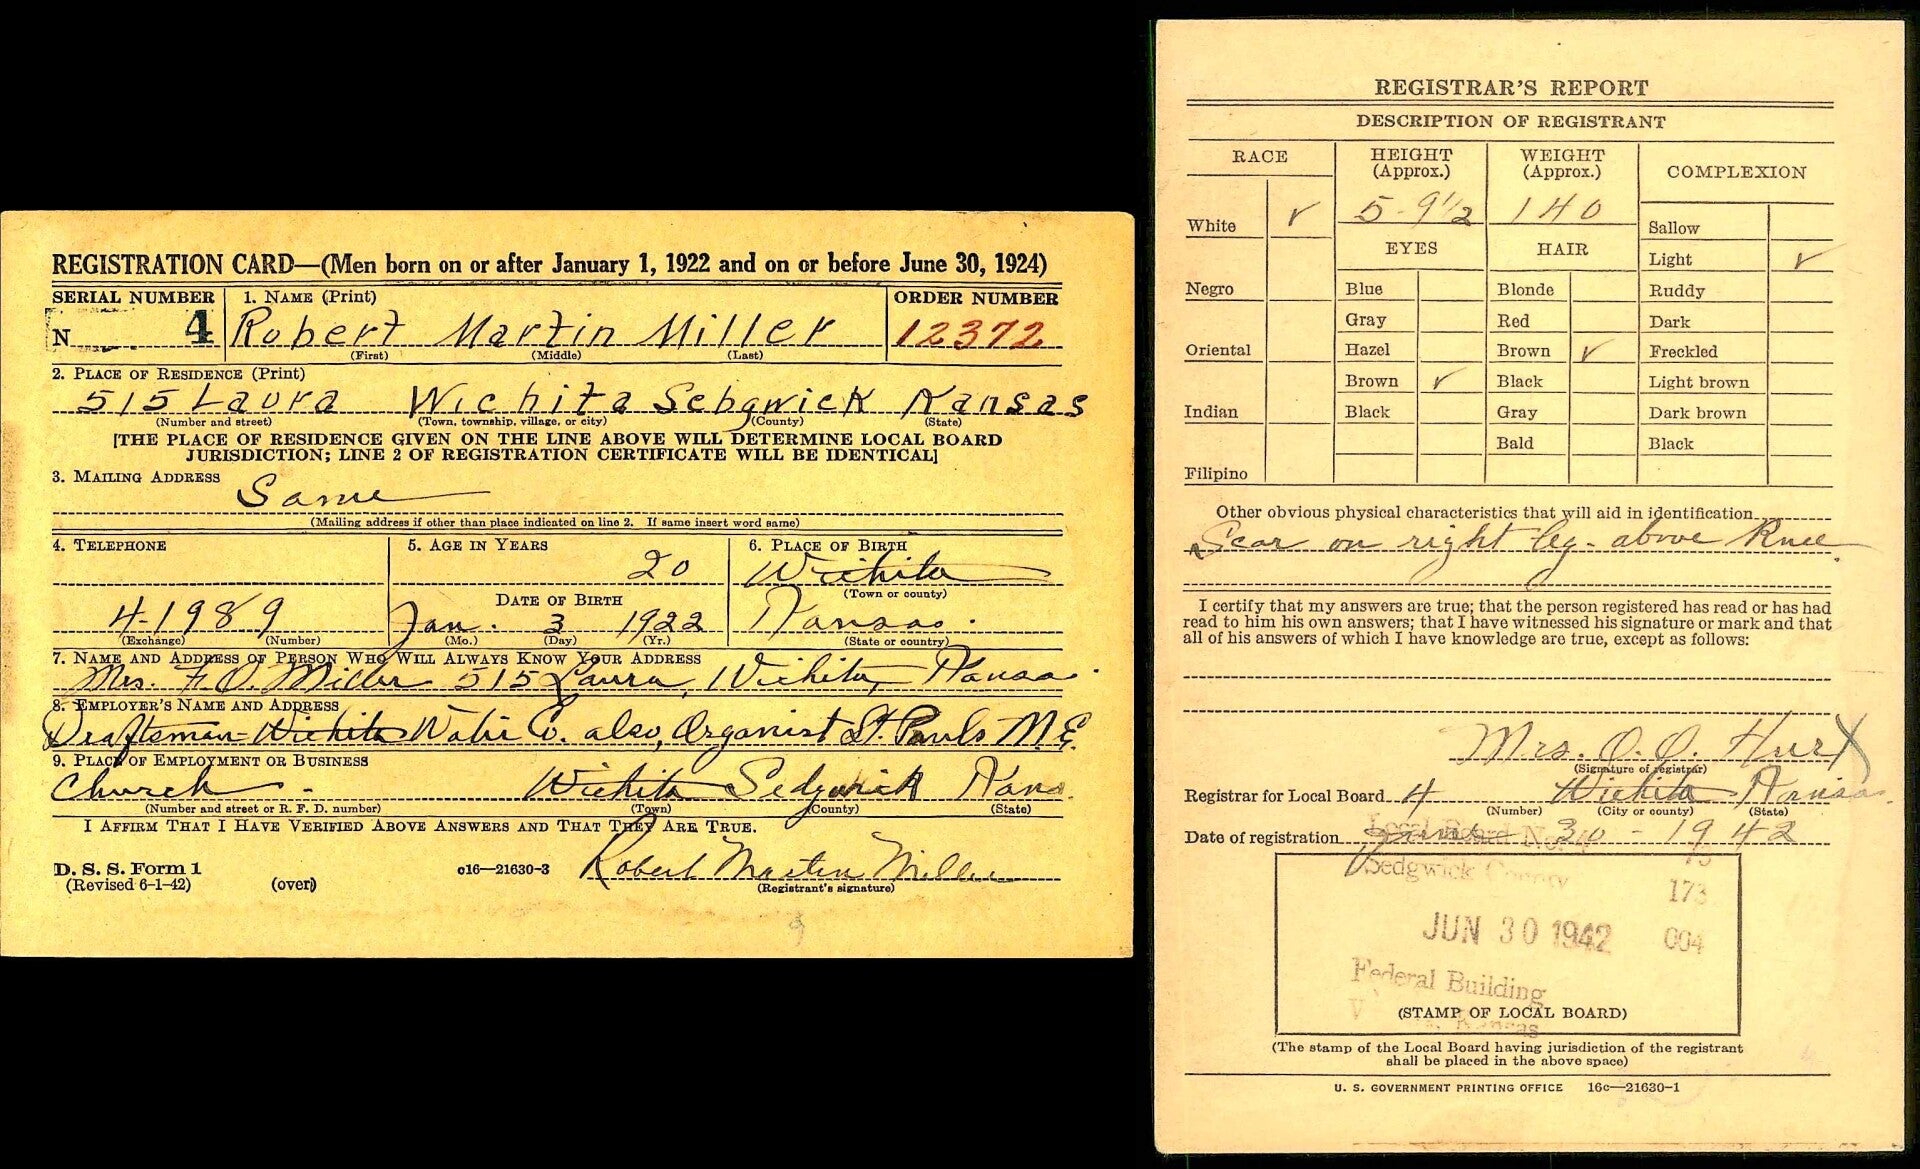 REGISTRATION CARD—(Men born on or after January 1, 1922 and on or before June 30, 1924)
SERIAL NUMBER
1. NAME (Print)
ORDER NUMBER
N 4
Robert Martin Miller
12372
(First) (Middle) (Last)
2. PLACE OF RESIDENCE (Print)
515 Laura Wichita Sebgwick Kansas
(Number and street) (Town, township, village, or city) (County) (State)
[THE PLACE OF RESIDENCE GIVEN ON THE LINE ABOVE WILL DETERMINE LOCAL BOARD
JURISDICTION; LINE 2 OF REGISTRATION CERTIFICATE WILL BE IDENTICAL]
3. MAILING ADDRESS
Same
(Mailing address if other than place indicated on line 2. If same insert word same)
4. TELEPHONE
5. AGE IN YEARS
6. PLACE OF BIRTH
20
Wichita
(Town or county)
DATE OF BIRTH
4-1989
Jan. 3 1922
Kansas.
(Exchange) (Number) (Mo.) (Day) (Yr.) (State or country)
7. NAME AND ADDRESS OF PERSON WHO WILL ALWAYS KNOW YOUR ADDRESS
Mrs. F. O. Miller 515 Laura, Wichita, Kansas.
8. EMPLOYER'S NAME AND ADDRESS
Draftsman - Wichita Water Co. also, Organist St. Pauls M.E.
9. PLACE OF EMPLOYMENT OR BUSINESS
Church - Wichita Sedgwick Kans.
(Number and street or R. F. D. number) (Town) (County) (State)
I AFFIRM THAT I HAVE VERIFIED ABOVE ANSWERS AND THAT THEY ARE TRUE.
D. S. S. Form 1
(Revised 6-1-42) (over)
c16—21630-3
Robert Martin Miller
(Registrant's signature)
REGISTRAR'S REPORT
DESCRIPTION OF REGISTRANT
RACE
HEIGHT (Approx.)
WEIGHT (Approx.)
COMPLEXION
White ✓
5-9 1/2
140
Sallow
EYES
HAIR
Light ✓
Negro
Blue
Blonde
Ruddy
Gray
Red
Dark
Oriental
Hazel
Brown ✓
Freckled
Brown ✓
Black
Light brown
Indian
Black
Gray
Dark brown
Bald
Black
Filipino
Other obvious physical characteristics that will aid in identification
Scar on right leg - above Knee.
I certify that my answers are true; that the person registered has read or has had
read to him his own answers; that I have witnessed his signature or mark and that
all of his answers of which I have knowledge are true, except as follows:
Mrs. O. O.
(Signature of registrar)
Registrar for Local Board 4 Wichita Kansas.
(Number) (City or county) (State)
Date of registration June 30 - 1942
Local Board No. 4
Sedgwick County
173
JUN 30 1942 004
Federal Building
Kansas
(STAMP OF LOCAL BOARD)
(The stamp of the Local Board having jurisdiction of the registrant
shall be placed in the above space)
U. S. GOVERNMENT PRINTING OFFICE 16c—21630-1